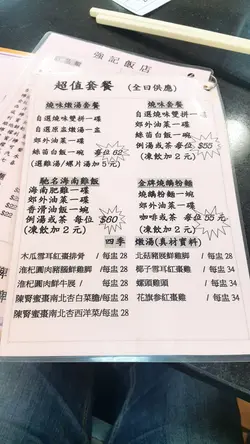 強記飯店
超值套餐 (全日供應)
燒味燉湯套餐
自選燒味雙拼一碟
自選原盅燉湯一盅
郊外油菜一碟
絲苗白飯一碗 每位 62
(選雞湯/螺片湯加 5 元)
燒味套餐
自選燒味雙拼一碟
郊外油菜一碟
絲苗白飯一碗
例湯或茶 每位 $55
(凍飲加 2 元)
馳名海南雞飯
海南肥雞一碟
郊外油菜一碟
香滑油飯一碗
例湯或茶 每位 $60
(凍飲加 2 元)
金牌燒鵝粉麵
燒鵝粉麵一碗
郊外油菜一碟
咖啡或茶 每位 55 元
(凍飲加 2 元)
四季 燉湯(真材實料)
木瓜雪耳紅棗排骨 / 每盅 28
淮杞圓肉豬𦟌鮮雞腳 / 每盅 28
淮杞圓肉鮮牛𦟌 / 每盅 28
陳腎蜜棗南北杏白菜膽/每盅 28
陳腎蜜棗南北杏西洋菜/每盅 28
北菇豬𦟌鮮雞腳 / 每盅 28
椰子雪耳紅棗雞 / 每盅 34
螺頭雞湯 / 每盅 34
花旗參紅棗雞 / 每盅 34